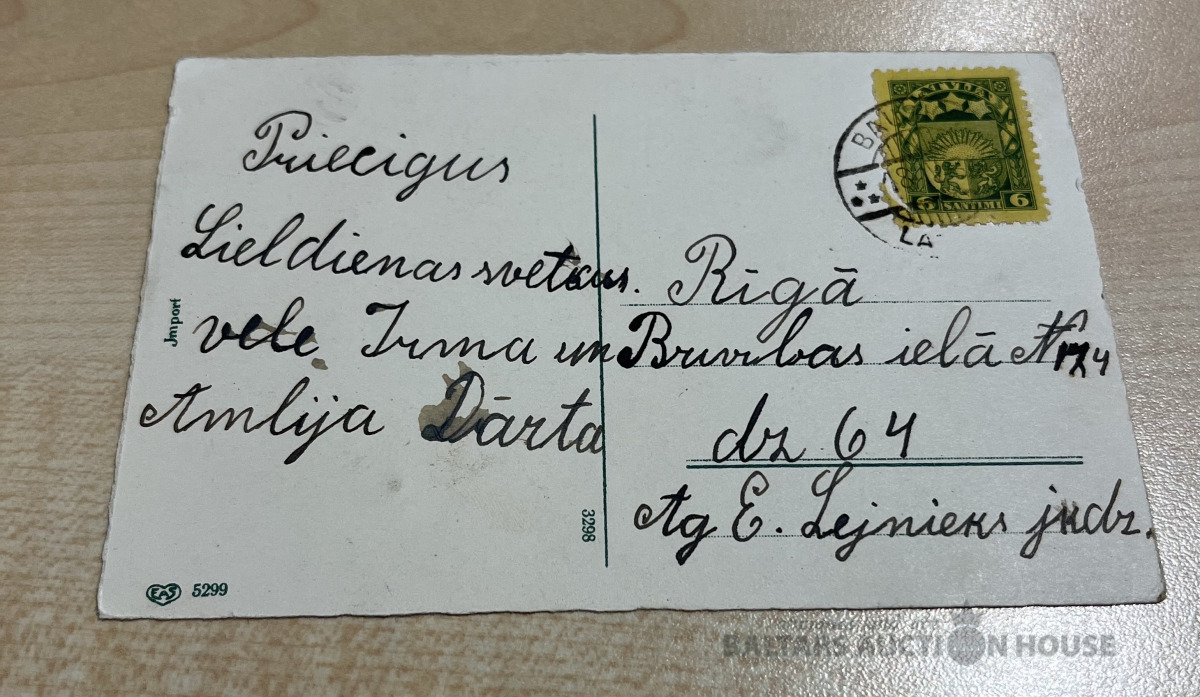 Priecigus
Lieldienas svetkus.
vēlē Irma un
Amlija Dārta
Import
3298
EAS 5299
LATVIJA
6 SANTIMI 6
BA
LA
Rīgā
Brivibas ielā №
dz 64
Ag E. Lejnieks jkdz.
BALTARS AUCTION HOUSE